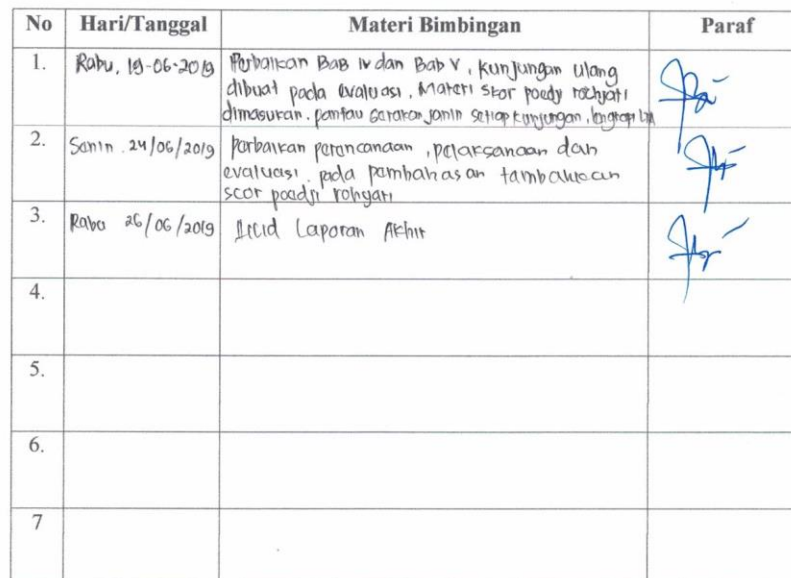 No Hari/Tanggal Materi Bimbingan Paraf
1. Rabu, 19-06-2019 Perbaikan Bab IV dan Bab V, kunjungan ulang
dibuat pada evaluasi, Materi skor poedy rochyati
dimasukan. pantau Gerakan janin setiap kunjungan, lengkapi
2. Senin 24/06/2019 perbaikan perencanaan, pelaksanaan dan
evaluasi, pada pembahasan tambahkan
scor poedji rohyati
3. Rabu 26/06/2019 Jilid Laporan Akhir
4.
5.
6.
7